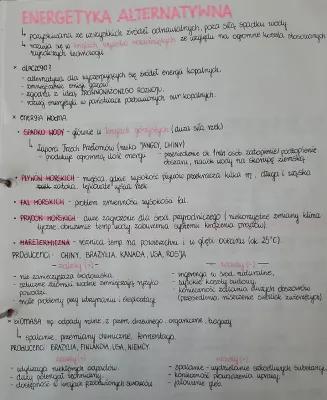 ENERGETYKA ALTERNATYWNA
↳ pozyskiwana ze wszystkich źródeł odnawialnych, poza siłą spadku wody
↳ rozwija się w krajach wysoko rozwiniętych ze względu na ogromne koszta stosowanych
najnowszych technologii
* DLACZEGO?
- alternatywa dla wyczerpujących się źródeł energii kopalnych.
- zmniejszenie emisji gazów
- zgodna z ideą ZRÓWNOWAŻONEGO ROZWOJU.
- rozwój energetyki w państwach pozbawionych sur. kopalnych.
* ENERGIA WODNA
• SPADKU WODY - głównie w krajach górzystych (duża siła rzek)
↳ Zapora Trzech Przełomów (rzeka JANGCY, CHINY)
- produkuje ogromną ilość energii
- przesiedlenie ok. 1mln osób, zatopienie/podtopienie
obszaru, nacisk wody na skorupę ziemską.
• PŁYWÓW MORSKICH - miejsca, gdzie wysokość pływów przekracza kilka m, długa i wąska
zatoka, lejkowate ujścia rzek
• FAL MORSKICH - problem zmienności wysokości fal.
• PRĄDÓW MORSKICH - duże zagrożenie dla środ. przyrodniczego (niekorzystne zmiany klima
tyczne, obniżenie temp. wody, zaburzenia systemu krążenia prądów).
• MARETERMICZNA - różnica temp. na powierzchni i w głębi oceanu (ok. 25°C).
PRODUCENCI: CHINY, BRAZYLIA, KANADA, USA, ROSJA
zalety (+)
- nie zanieczyszcza środowiska
- sztuczne zbiorniki wodne zmniejszają ryzyko
powodzi
- małe problemy przy utrzymaniu i eksploatacji
wady (-)
- ingerencja w środ. naturalne,
- wysokie koszty budowy,
- konieczność zalania dużych obszarów
(przesiedlenia, niszczenie siedlisk zwierzęcych)
* BIOMASA np. odpady rolne, z przem. drzewnego, organiczne, biogazy
↳ spalanie, przemiany chemiczne, fermentacja.
PRODUCENCI: BRAZYLIA, FINLANDIA, USA, NIEMCY.
zalety (+)
- utylizacja niektórych odpadów.
- duży potencjał techniczny.
- dostępność w krajach pozbawionych surowców
wady (-)
- spalanie - wydzielanie szkodliwych substancji.
- konieczność prowadzenia uprawy
- jałowienie gleb.